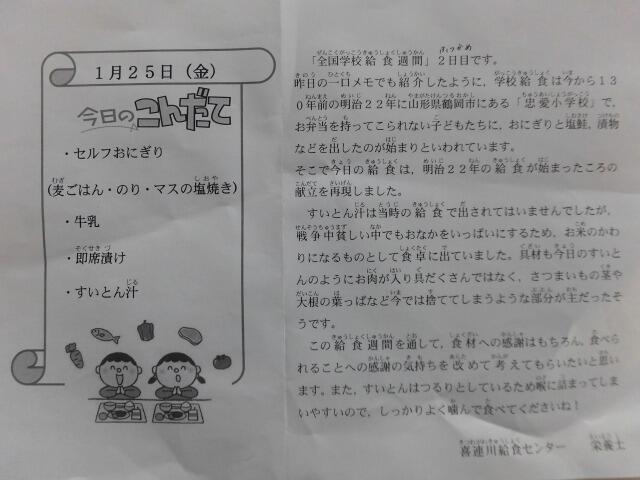 1月25日（金）
今日のこんだて
・セルフおにぎり
(麦ごはん・のり・マスの塩焼き)
・牛乳
・即席漬け
・すいとん汁
「全国学校給食週間」2日目です。
昨日の一口メモでも紹介したように，学校給食は今から13
0年前の明治22年に山形県鶴岡市にある「忠愛小学校」で，
お弁当を持ってこられない子どもたちに，おにぎりと塩鮭，漬物
などを出したのが始まりといわれています。
そこで今日の給食は，明治22年の給食が始まったころの
献立を再現しました。
すいとん汁は当時の給食で出されてはいませんでしたが，
戦争中貧しい中でもおなかをいっぱいにするため，お米のかわ
りになるものとして食卓に出ていました。具材も今日のすいと
んのようにお肉が入り具だくさんではなく，さつまいもの茎や
大根の葉っぱなど今では捨ててしまうような部分が主だったそ
うです。
この給食週間を通して，食材への感謝はもちろん，食べら
れることへの感謝の気持ちを改めて考えてもらいたいと思い
ます。また，すいとんはつるりとしているため喉に詰まってしま
いやすいので，しっかりよく噛んで食べてくださいね！
喜連川給食センター　栄養士